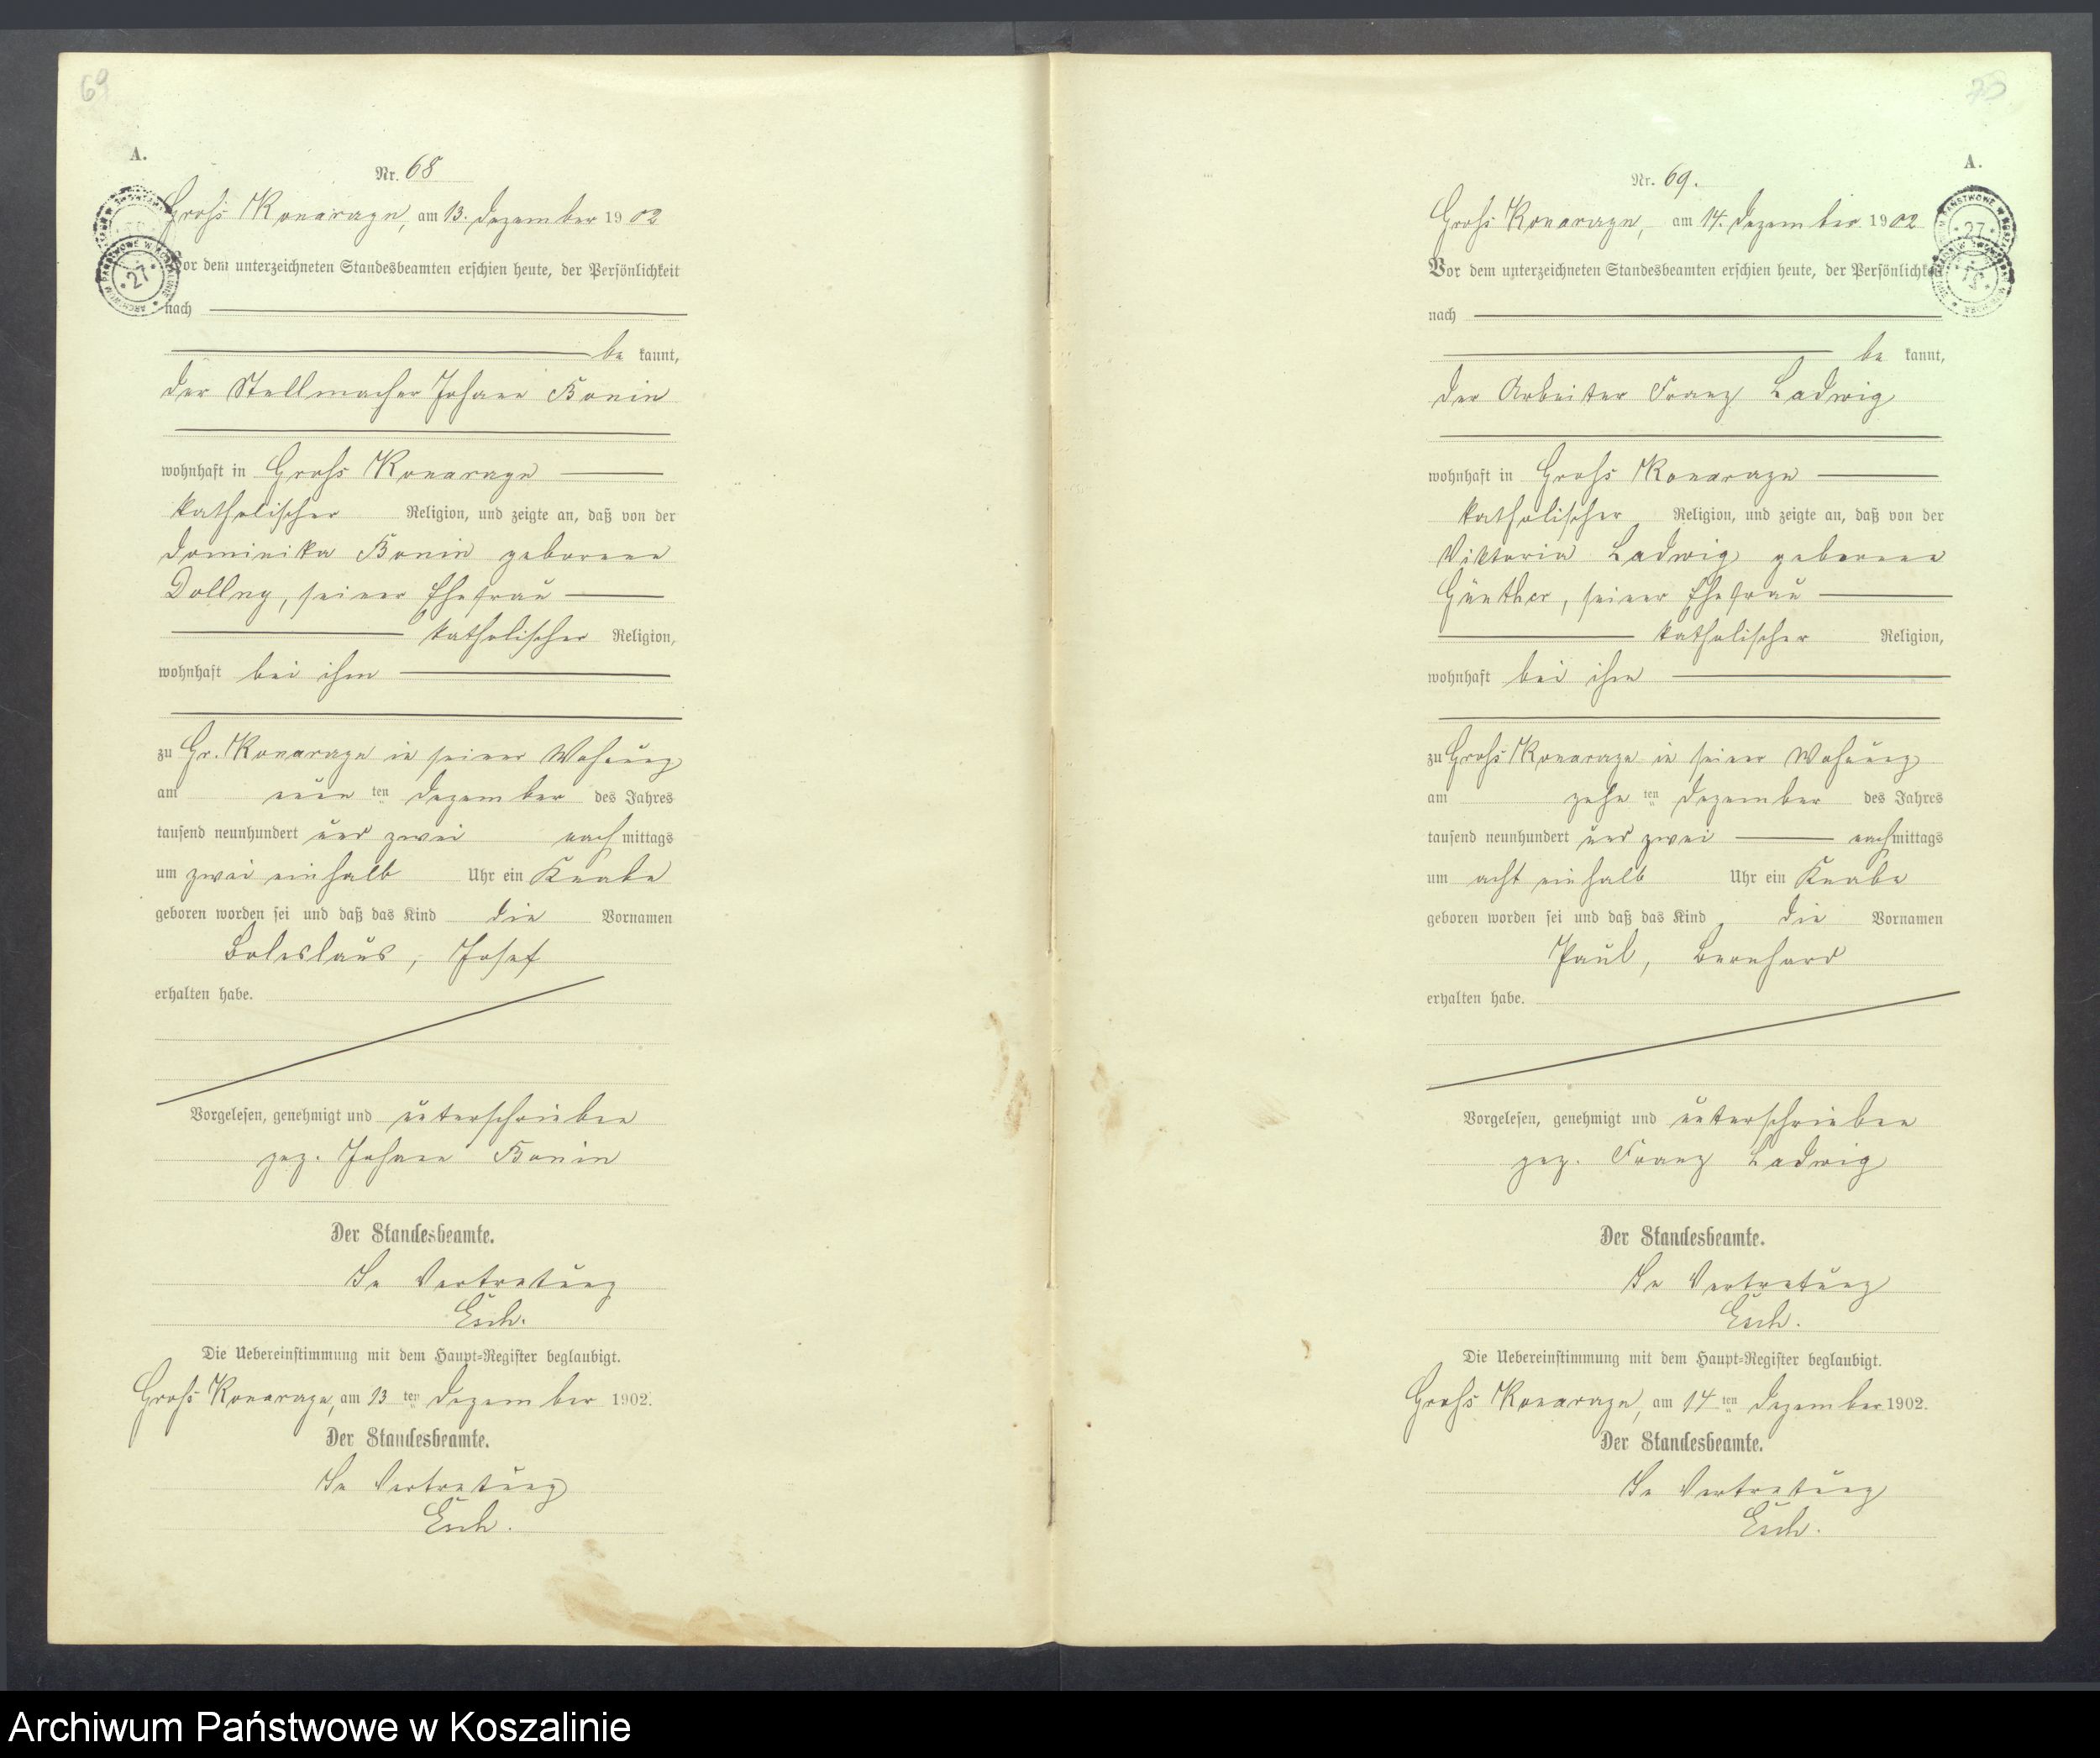 69
A.
Nr. 68
Groß Konarazyn, am 13. Dezember 1902
Vor dem unterzeichneten Standesbeamten erschien heute, der Persönlichkeit
nach
be kannt,
der Stellmacher Johann Bonin
wohnhaft in Groß Konarzyn
katholischer Religion, und zeigte an, daß von der
Dominika Bonin geborene
Dollny, seiner Ehefrau
katholischer Religion,
wohnhaft bei ihm
zu Gr. Konarzyn in seiner Wohnung
am neun ten Dezember des Jahres
tausend neunhundert und zwei nach mittags
um zwei einhalb Uhr ein Knabe
geboren worden sei und daß das Kind die Vornamen
Boleslaus, Josef
erhalten habe.
Vorgelesen, genehmigt und unterschrieben
gez. Johann Bonin
Der Standesbeamte.
In Vertretung
Esch.
Die Uebereinstimmung mit dem Haupt-Register beglaubigt.
Groß Konarzyn, am 13 ten Dezember 1902.
Der Standesbeamte.
In Vertretung
Esch.
A.
Nr. 69.
Groß Konarzyn, am 14. Dezember 1902
Vor dem unterzeichneten Standesbeamten erschien heute, der Persönlichkeit
nach
be kannt,
der Arbeiter Franz Ladwig
wohnhaft in Groß Konarzyn
katholischer Religion, und zeigte an, daß von der
Viktoria Ladwig geborene
Günther, seiner Ehefrau
katholischer Religion,
wohnhaft bei ihm
zu Groß Konarzyn in seiner Wohnung
am zehn ten Dezember des Jahres
tausend neunhundert und zwei nachmittags
um acht einhalb Uhr ein Knabe
geboren worden sei und daß das Kind die Vornamen
Paul, Bernhard
erhalten habe.
Vorgelesen, genehmigt und unterschrieben
gez. Franz Ladwig
Der Standesbeamte.
In Vertretung
Esch.
Die Uebereinstimmung mit dem Haupt-Register beglaubigt.
Groß Konarzyn, am 14 ten Dezember 1902.
Der Standesbeamte.
In Vertretung
Esch.
Archiwum Państwowe w Koszalinie